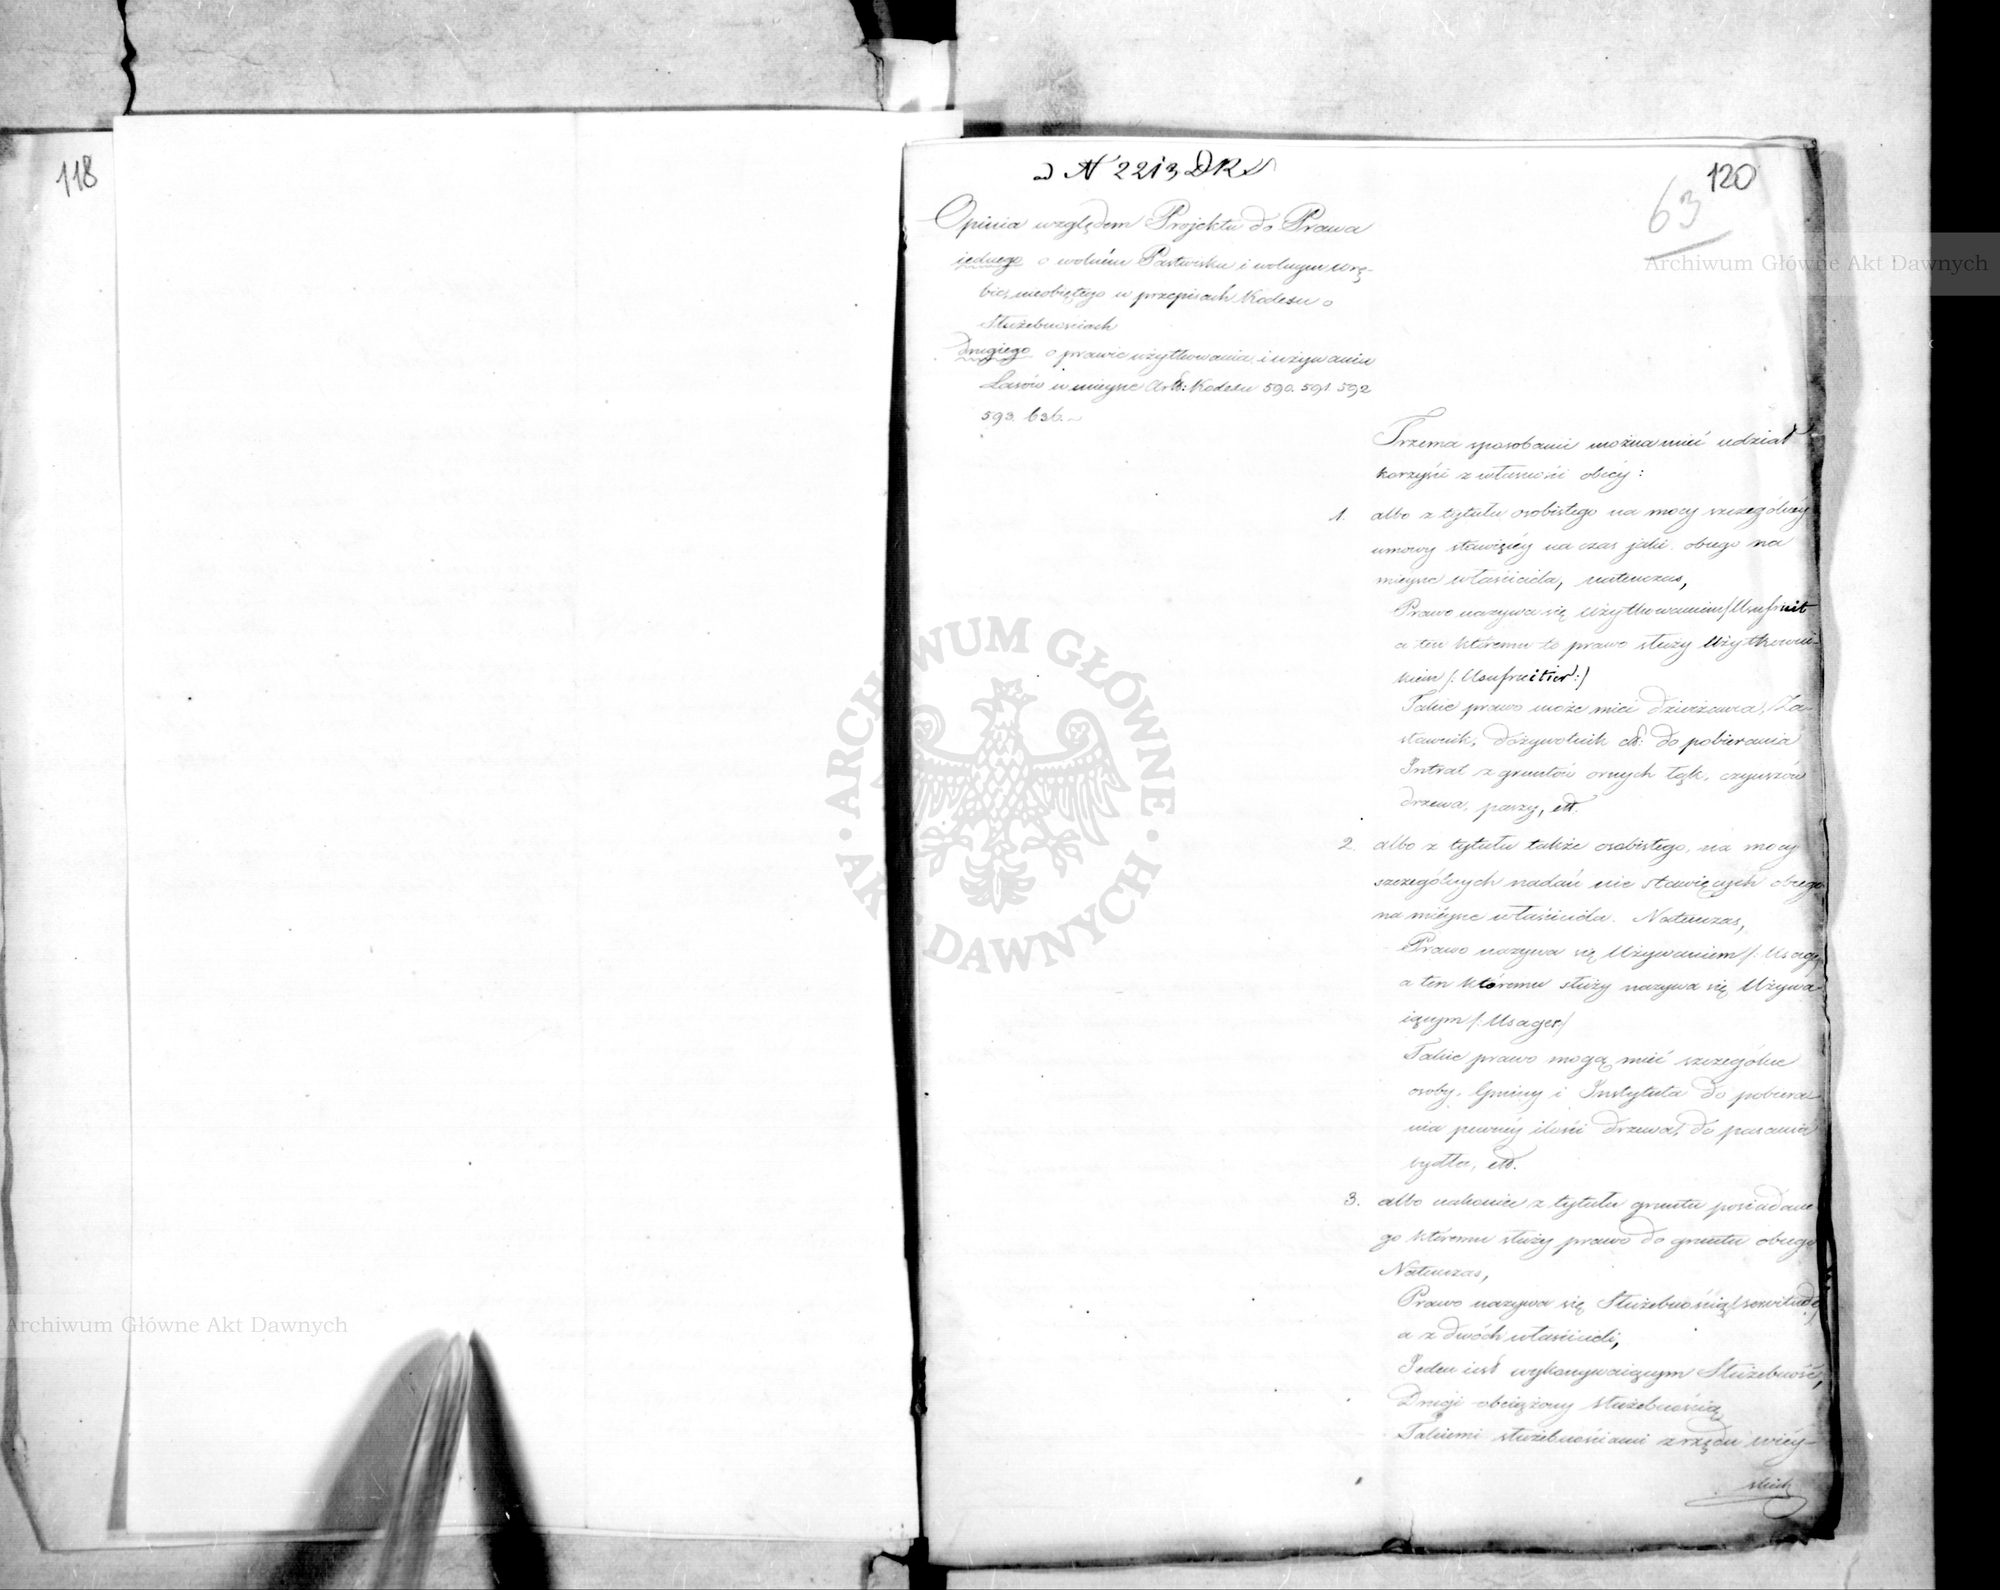 118
ad N 2213 DKS
120
63
Opinia względem Projektu do Prawa
iednego o wolném Pastwisku i wolnym wrę-
bie, nieobiętego w przepisach Kodexu o
Służebnościach
drugiego o prawie użytkowania i używania
Lasów w mieysc Artt: Kodexu 590. 591 592
593. 636.~
Trzema sposobami można mieć udział
korzyści z własności obcéy:
1. albo z tytułu osobistego na mocy szczególnéy
umowy stawiącéy na czas jaki obcego na
mieysc właściciela, natenczas,
Prawo nazywa się Użytkowaniem /: Usufruit
a ten któremu to prawo służy Użytkowni-
kiem /: Usufruitier:/
Takie prawo może mieć dzierżawca, Za-
stawnik, dożywotnik ett: do pobierania
Intrat z gruntów ornych łąk, czynszów
drzewa, paszy, ett.
2. albo z tytułu także osobistego, na mocy
szczególnych nadań nie stawiących obcego
na miéysc właściciela. Natenczas,
Prawo nazywa się Używaniem /: Usage,
a ten któremu służy nazywa się Używa-
iącym /: Usager/
Takie prawo mogą mieć szczególne
osoby, Gminy i Instytuta do pobiera-
nia pewnéy ilości drzewa, do pasania
bydła, ett.
3. albo nakoniec z tytułu gruntu posiadane-
go któremu służy prawo do gruntu obcego
Natenczas,
Prawo nazywa się Służebnością /: servitude
a z dwóch właścicieli,
Jeden iest wykonywaiącym Służebność,
Drugi obciążony służebnością
Takiemi służebnościami z rzędu wiéy-
skich
Archiwum Główne Akt Dawnych
Archiwum Główne Akt Dawnych
ARCHIWUM GŁÓWNE AKT DAWNYCH